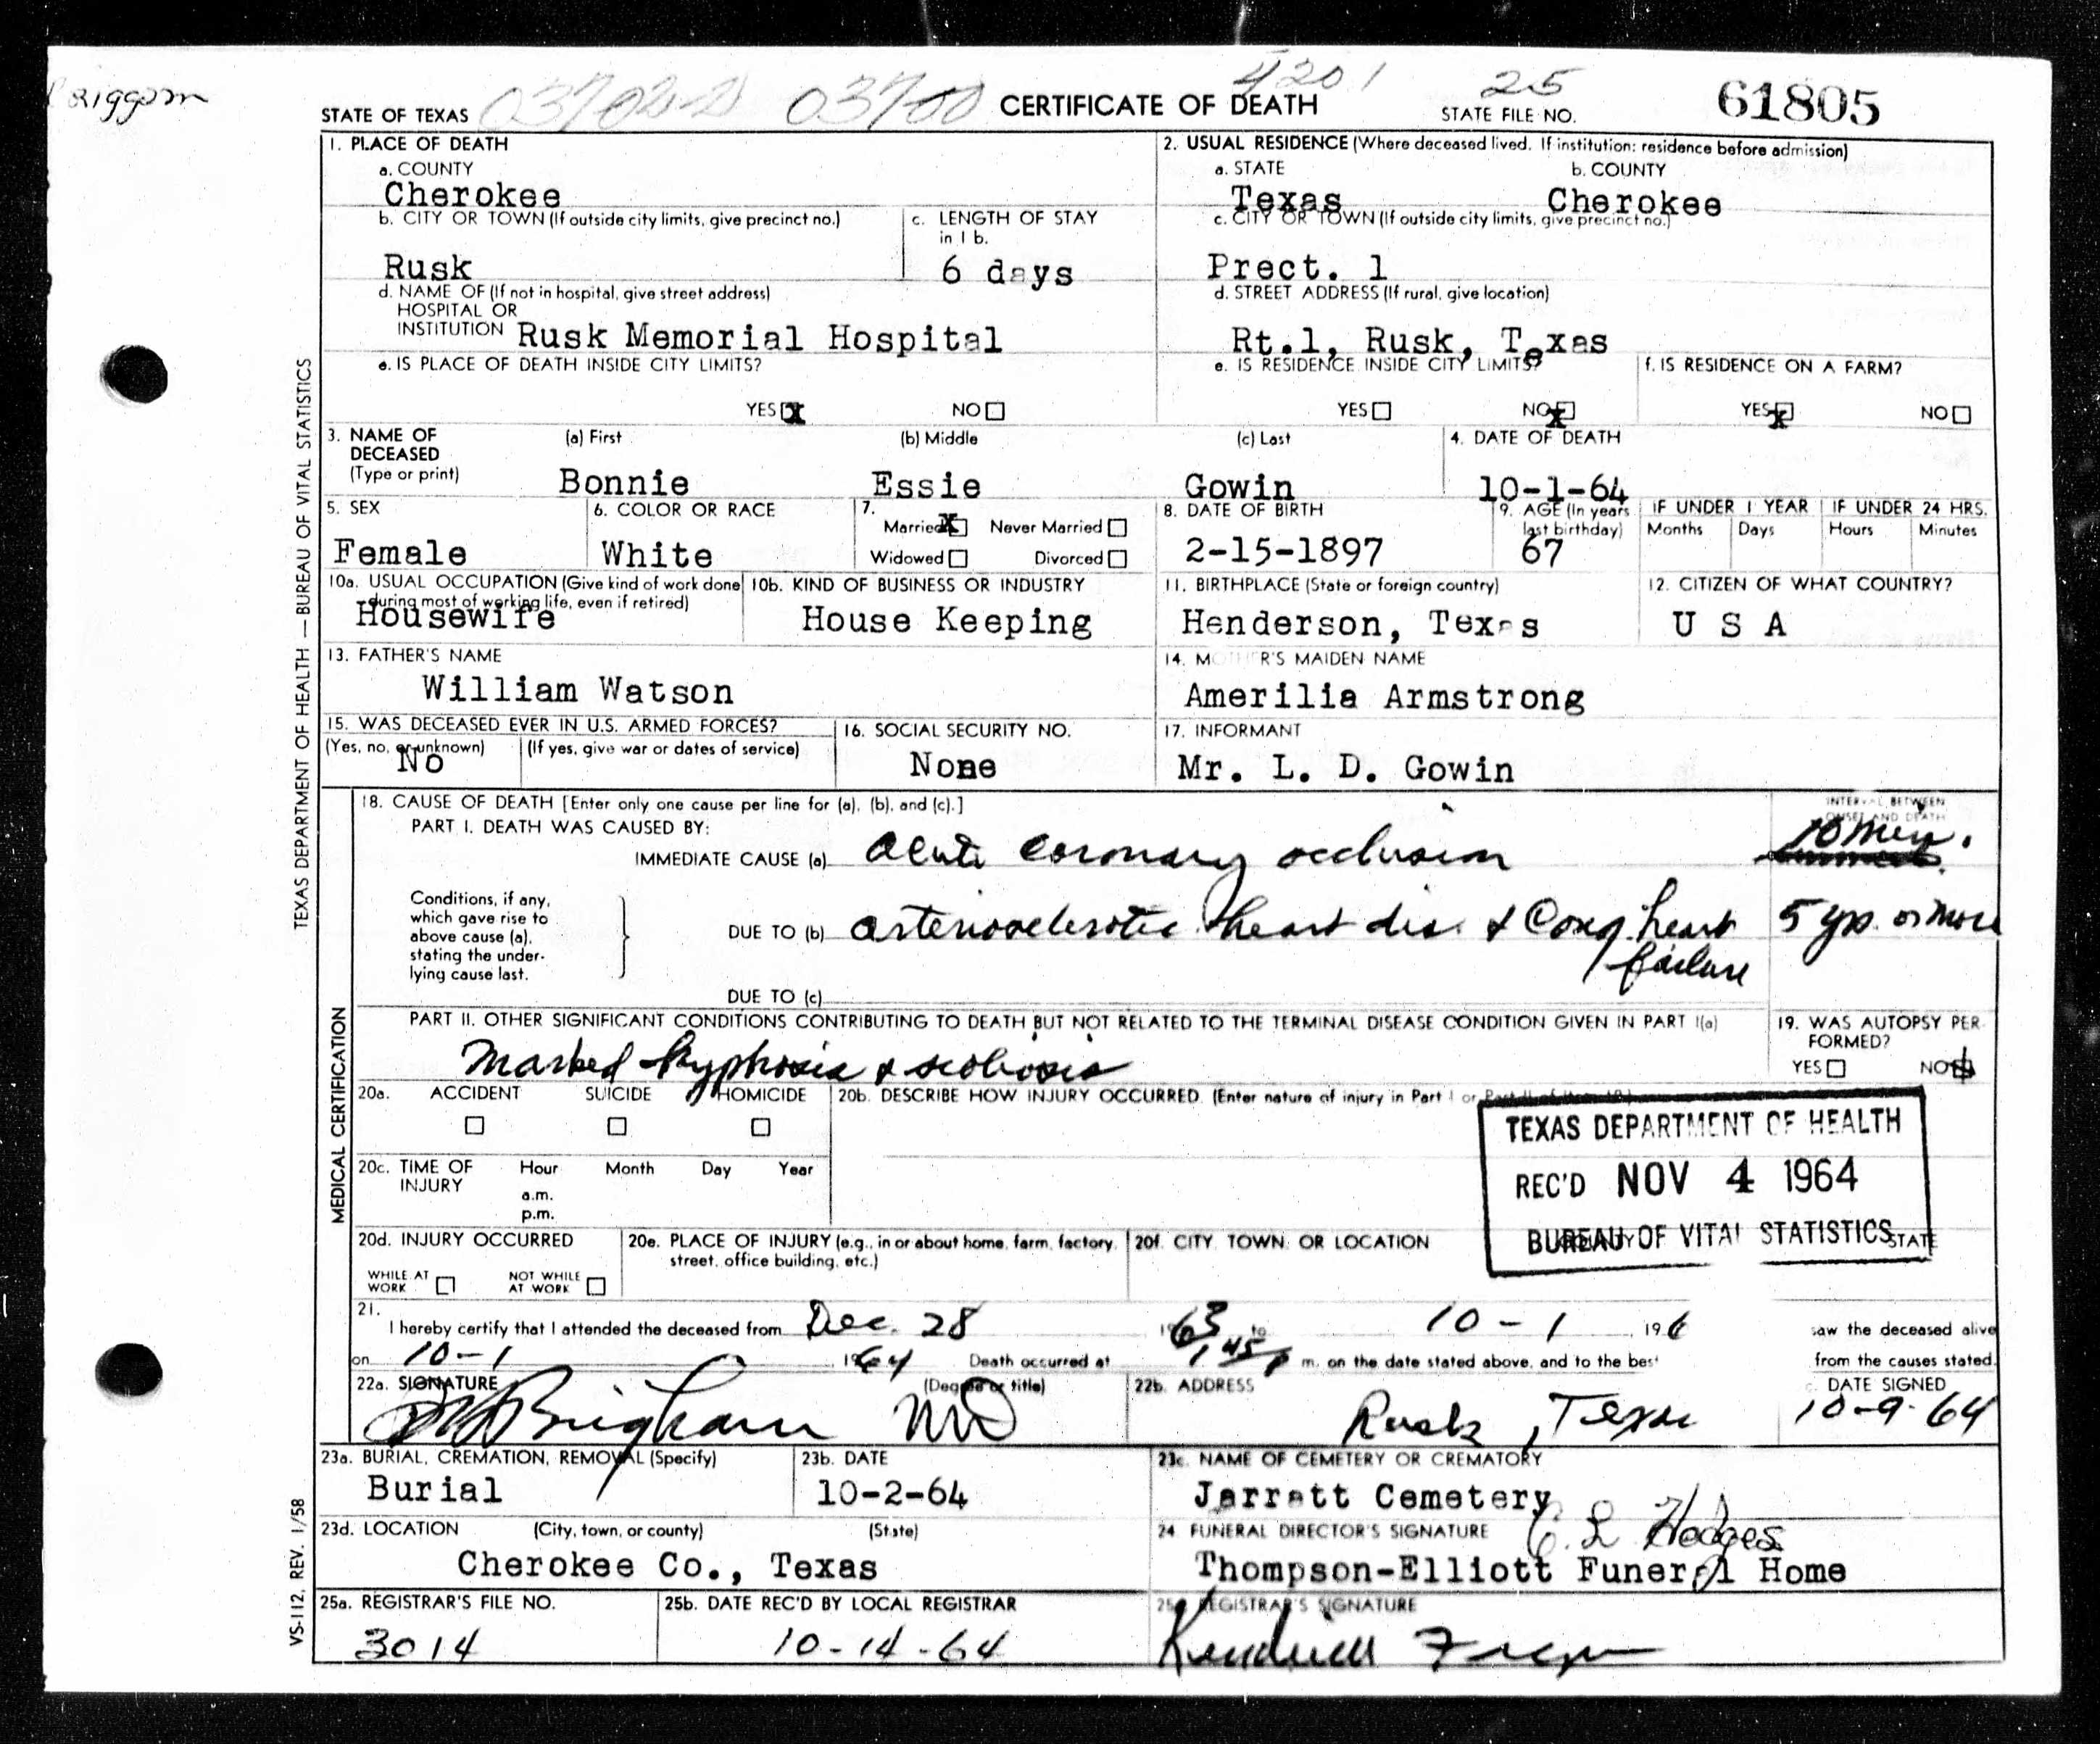 4201
25
STATE OF TEXAS
CERTIFICATE OF DEATH
STATE FILE NO. 61805
TEXAS DEPARTMENT OF HEALTH — BUREAU OF VITAL STATISTICS
1. PLACE OF DEATH
a. COUNTY
Cherokee
b. CITY OR TOWN (If outside city limits, give precinct no.)
Rusk
c. LENGTH OF STAY
in 1 b.
6 days
d. NAME OF (If not in hospital, give street address)
HOSPITAL OR
INSTITUTION Rusk Memorial Hospital
e. IS PLACE OF DEATH INSIDE CITY LIMITS?
YES X NO
2. USUAL RESIDENCE (Where deceased lived. If institution: residence before admission)
a. STATE
Texas
b. COUNTY
Cherokee
c. CITY OR TOWN (If outside city limits, give precinct no.)
Prect. 1
d. STREET ADDRESS (If rural, give location)
Rt.1, Rusk, Texas
e. IS RESIDENCE INSIDE CITY LIMITS?
YES NO X
f. IS RESIDENCE ON A FARM?
YES X NO
3. NAME OF
DECEASED
(Type or print)
(a) First
Bonnie
(b) Middle
Essie
(c) Last
Gowin
4. DATE OF DEATH
10-1-64
5. SEX
Female
6. COLOR OR RACE
White
7.
Married X Never Married
Widowed Divorced
8. DATE OF BIRTH
2-15-1897
9. AGE (In years
last birthday)
67
IF UNDER 1 YEAR
Months Days
IF UNDER 24 HRS.
Hours Minutes
10a. USUAL OCCUPATION (Give kind of work done
during most of working life, even if retired)
Housewife
10b. KIND OF BUSINESS OR INDUSTRY
House Keeping
11. BIRTHPLACE (State or foreign country)
Henderson, Texas
12. CITIZEN OF WHAT COUNTRY?
U S A
13. FATHER'S NAME
William Watson
14. MOTHER'S MAIDEN NAME
Amerilia Armstrong
15. WAS DECEASED EVER IN U.S. ARMED FORCES?
(Yes, no, or unknown)
No
(If yes, give war or dates of service)
16. SOCIAL SECURITY NO.
None
17. INFORMANT
Mr. L. D. Gowin
MEDICAL CERTIFICATION
18. CAUSE OF DEATH [Enter only one cause per line for (a), (b), and (c).]
PART I. DEATH WAS CAUSED BY:
INTERVAL BETWEEN
ONSET AND DEATH
IMMEDIATE CAUSE (a) Acute coronary occlusion
10 min.
Conditions, if any,
which gave rise to
above cause (a),
stating the under-
lying cause last.
DUE TO (b) arteriosclerotic heart dis. & Cong. heart
failure
5 yrs. or more
DUE TO (c)
PART II. OTHER SIGNIFICANT CONDITIONS CONTRIBUTING TO DEATH BUT NOT RELATED TO THE TERMINAL DISEASE CONDITION GIVEN IN PART 1(a)
Marked kyphosis & scoliosis
19. WAS AUTOPSY PER-
FORMED?
YES NO
20a. ACCIDENT SUICIDE HOMICIDE
20b. DESCRIBE HOW INJURY OCCURRED. (Enter nature of injury in Part I or Part II of item 18.)
TEXAS DEPARTMENT OF HEALTH
REC'D NOV 4 1964
BUREAU OF VITAL STATISTICS
20c. TIME OF
INJURY
Hour Month Day Year
a.m.
p.m.
20d. INJURY OCCURRED
WHILE AT
WORK
NOT WHILE
AT WORK
20e. PLACE OF INJURY (e.g., in or about home, farm, factory,
street, office building, etc.)
20f. CITY, TOWN, OR LOCATION
COUNTY STATE
21.
I hereby certify that I attended the deceased from Dec. 28 1963 to 10-1 196 saw the deceased alive
on 10-1 1964 Death occurred at m. on the date stated above, and to the best from the causes stated.
22a. SIGNATURE
(Degree or title)
Brigham MD
22b. ADDRESS
Rusk, Texas
c. DATE SIGNED
10-9-64
23a. BURIAL, CREMATION, REMOVAL (Specify)
Burial
23b. DATE
10-2-64
23c. NAME OF CEMETERY OR CREMATORY
Jarratt Cemetery
23d. LOCATION (City, town, or county) (State)
Cherokee Co., Texas
24. FUNERAL DIRECTOR'S SIGNATURE
C. L. Hodges
Thompson-Elliott Funeral Home
25a. REGISTRAR'S FILE NO.
3014
25b. DATE REC'D BY LOCAL REGISTRAR
10-14-64
25c. REGISTRAR'S SIGNATURE
VS-112, REV. 1/58